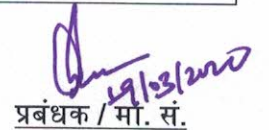 19/03/2020
प्रबंधक / मा. सं.